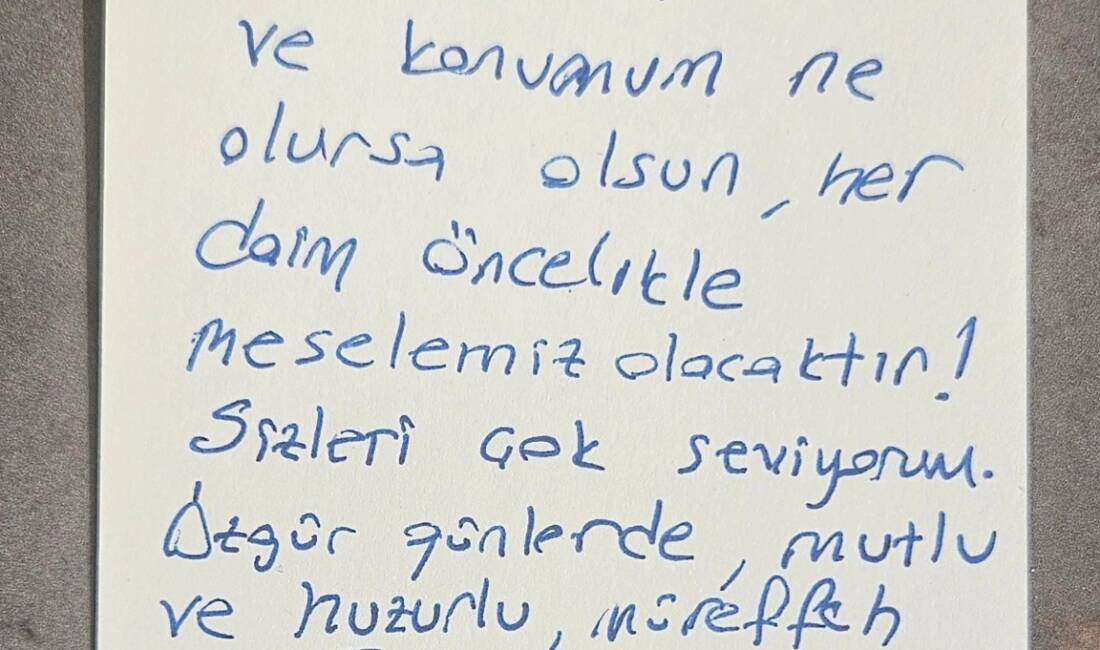 ve konumum ne
olursa olsun, her
daim öncelikle
meselemiz olacaktır!
Sizleri çok seviyorum.
Özgür günlerde, mutlu
ve huzurlu, müreffeh